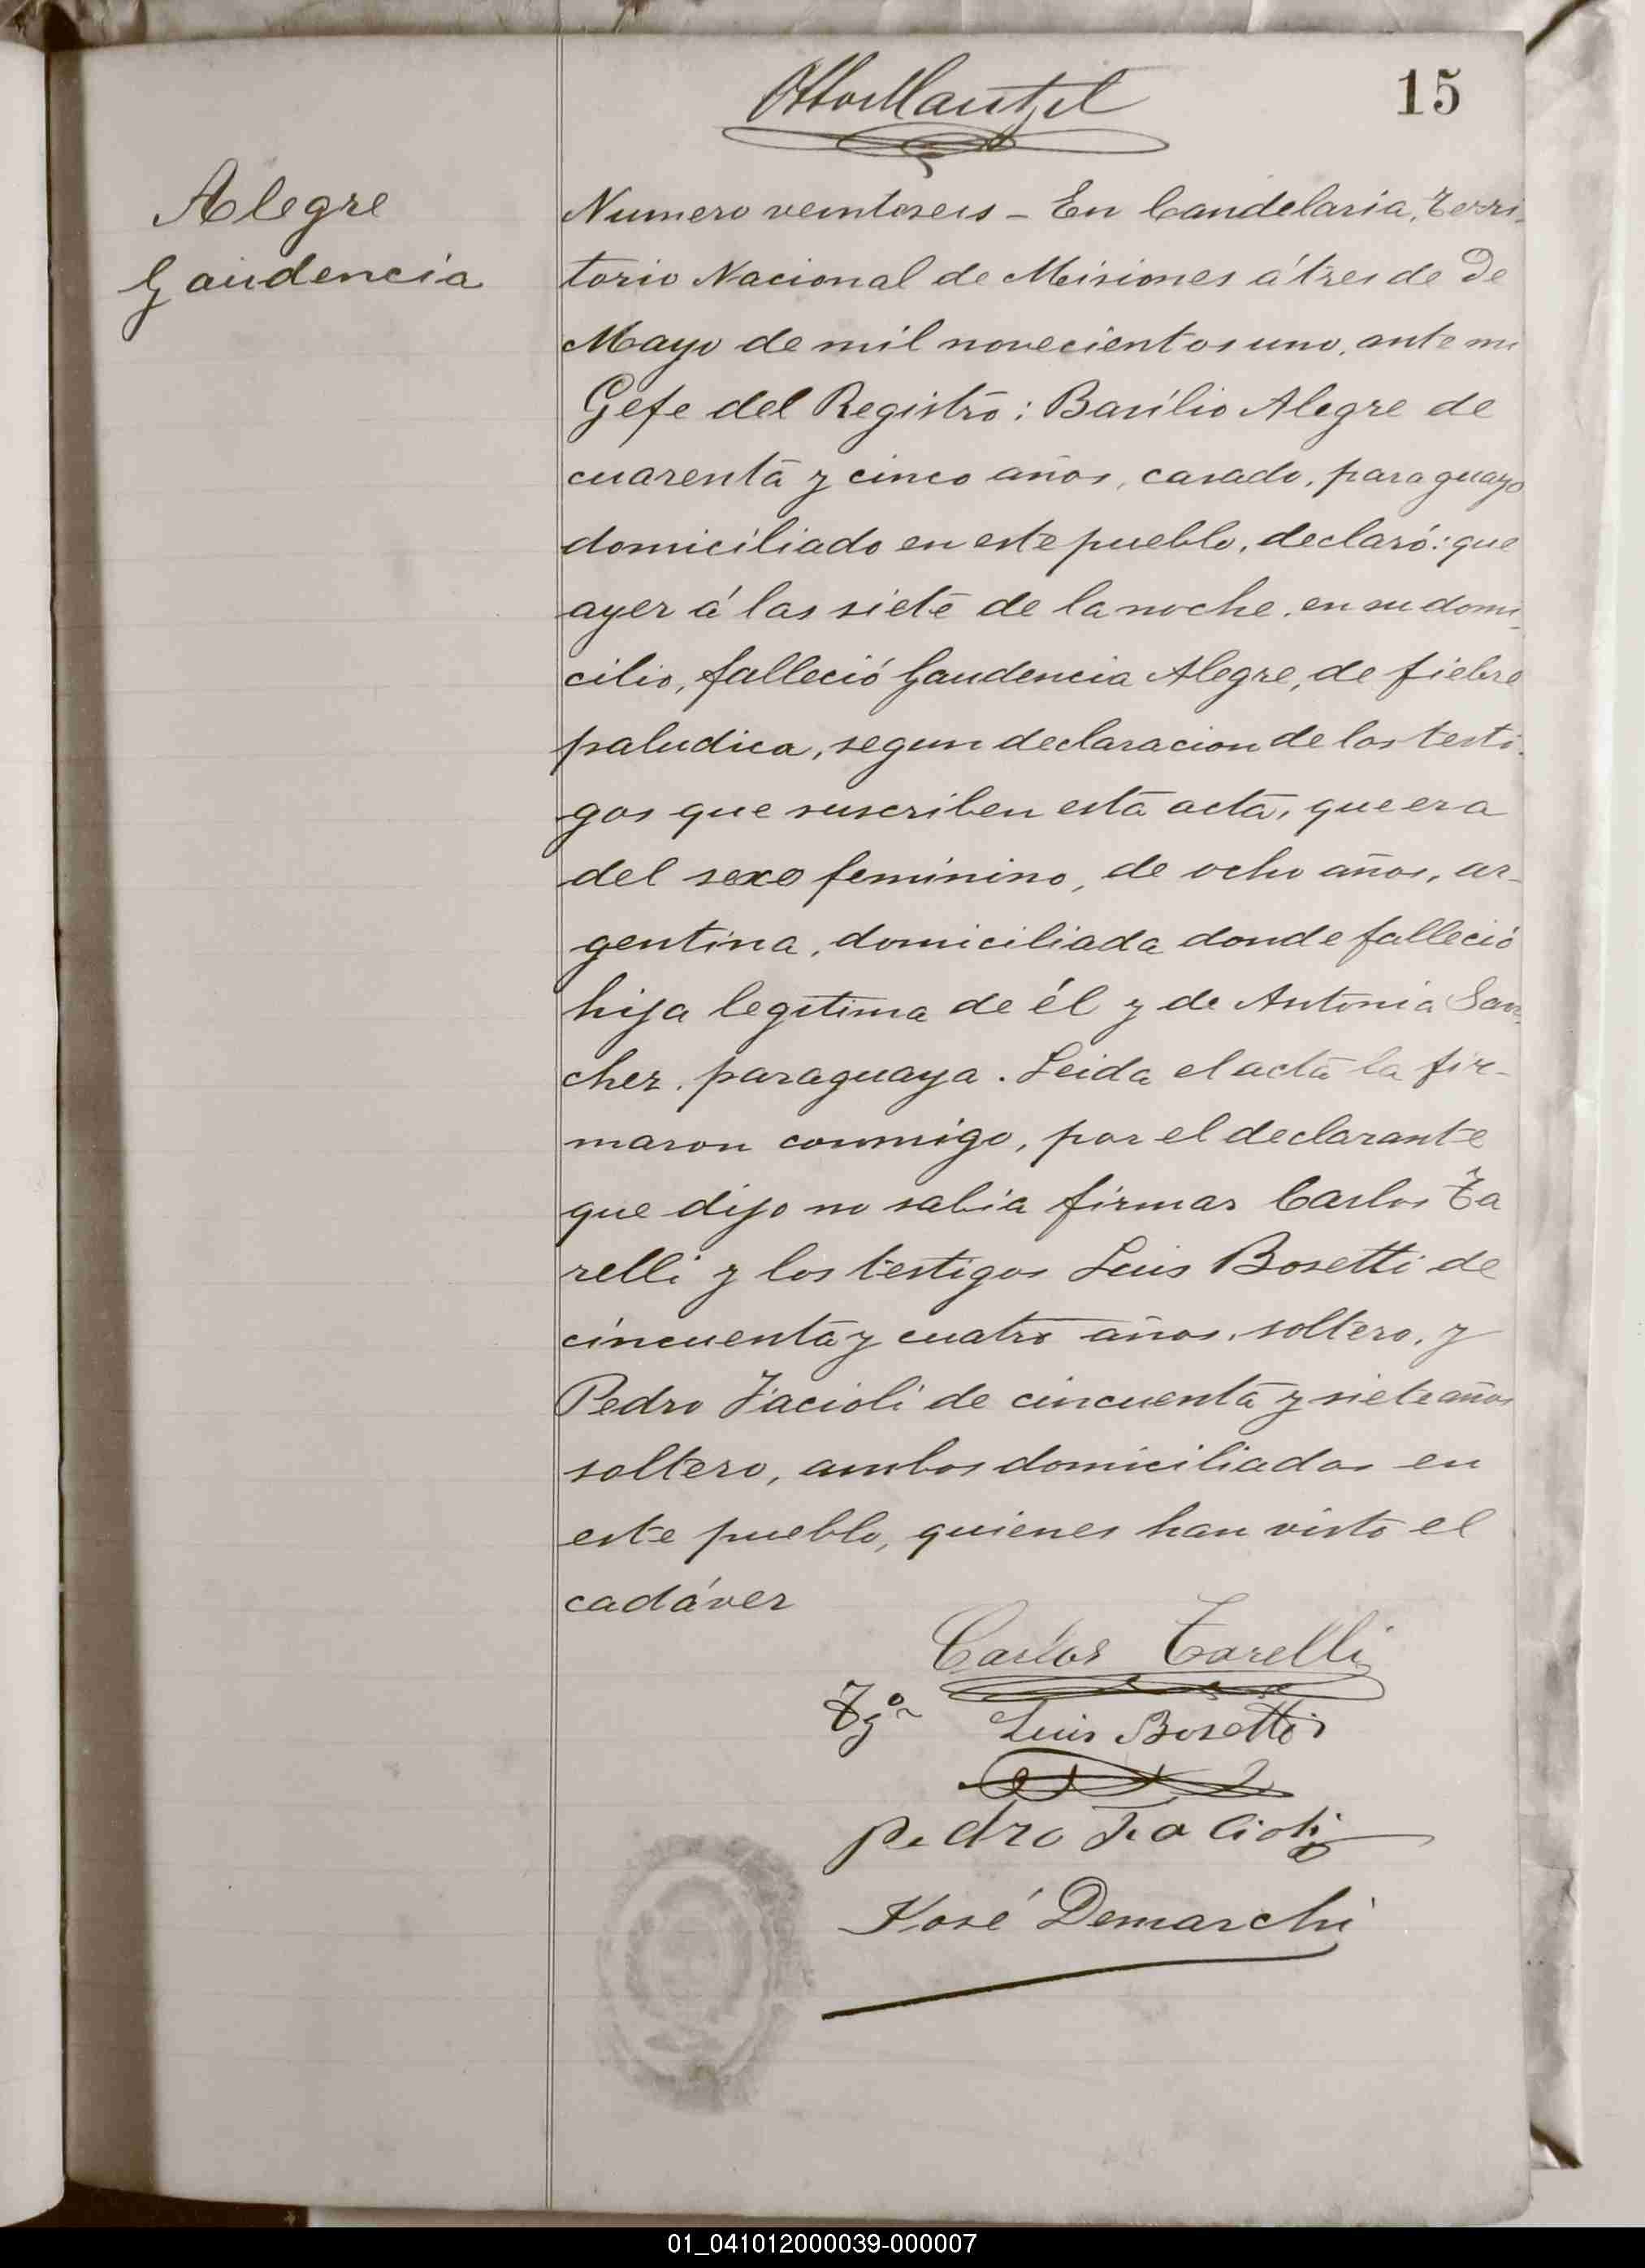 Otto Mantzel
15
Alegre
Gaudencia
Numero veintiseis - En Candelaria, Terri-
torio Nacional de Misiones á tres de De
Mayo de mil novecientos uno, ante mi
Gefe del Registro: Basilio Alegre de
cuarenta y cinco años, casado, paraguayo
domiciliado en este pueblo, declaró: que
ayer á las siete de la noche, en su domi-
cilio, falleció Gaudencia Alegre, de fiebre
paludica, segun declaracion de los testi-
gos que suscriben esta acta, que era
del sexo feminino, de ocho años, ar-
gentina, domiciliada donde falleció
hija legitima de él y de Antonia San-
chez, paraguaya. Leida el acta la fir-
maron conmigo, por el declarante
que dijo no sabia firmar Carlos Ta
relli y los testigos Luis Bosetti de
cincuenta y cuatro años, soltero, y
Pedro Facioli de cincuenta y siete años
soltero, ambos domiciliados en
este pueblo, quienes han visto el
cadáver
Carlos Tarelli
Tgo
Luis Bosetti
Pedro Facioli
José Demarchi
01_041012000039-000007